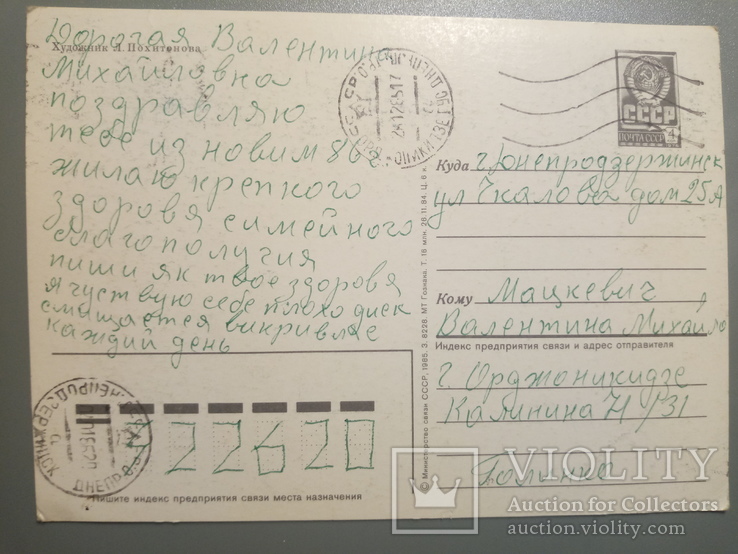 Художник Л. Похитонова
Дорогая Валентина
Михайловна
поздравляю
тебе из новим 86 г
жилаю крепкого
здоровя симейного
благополучия
пиши як твое здоровя
я чуствую себе плохо диск
смищается викривляе
каждий день
СССР
ПОЧТА СССР
4
28 12 85 17
Куда г. Днепродзержинск
ул Чкалова дом 25 А
Кому Мацкевич
Валентина Михайло
Индекс предприятия связи и адрес отправителя
г. Орджоникидзе
Калинина 71/31
© Министерство связи СССР, 1985. З. 8228. МТ Гознака. Т. 16 млн. 26.11.84. Ц. 6 к.
ДНЕПРОДЗЕРЖИНСК
ДНЕПР
Пишите индекс предприятия связи места назначения
VIOLITY
Auction for Collectors
auction.violity.com